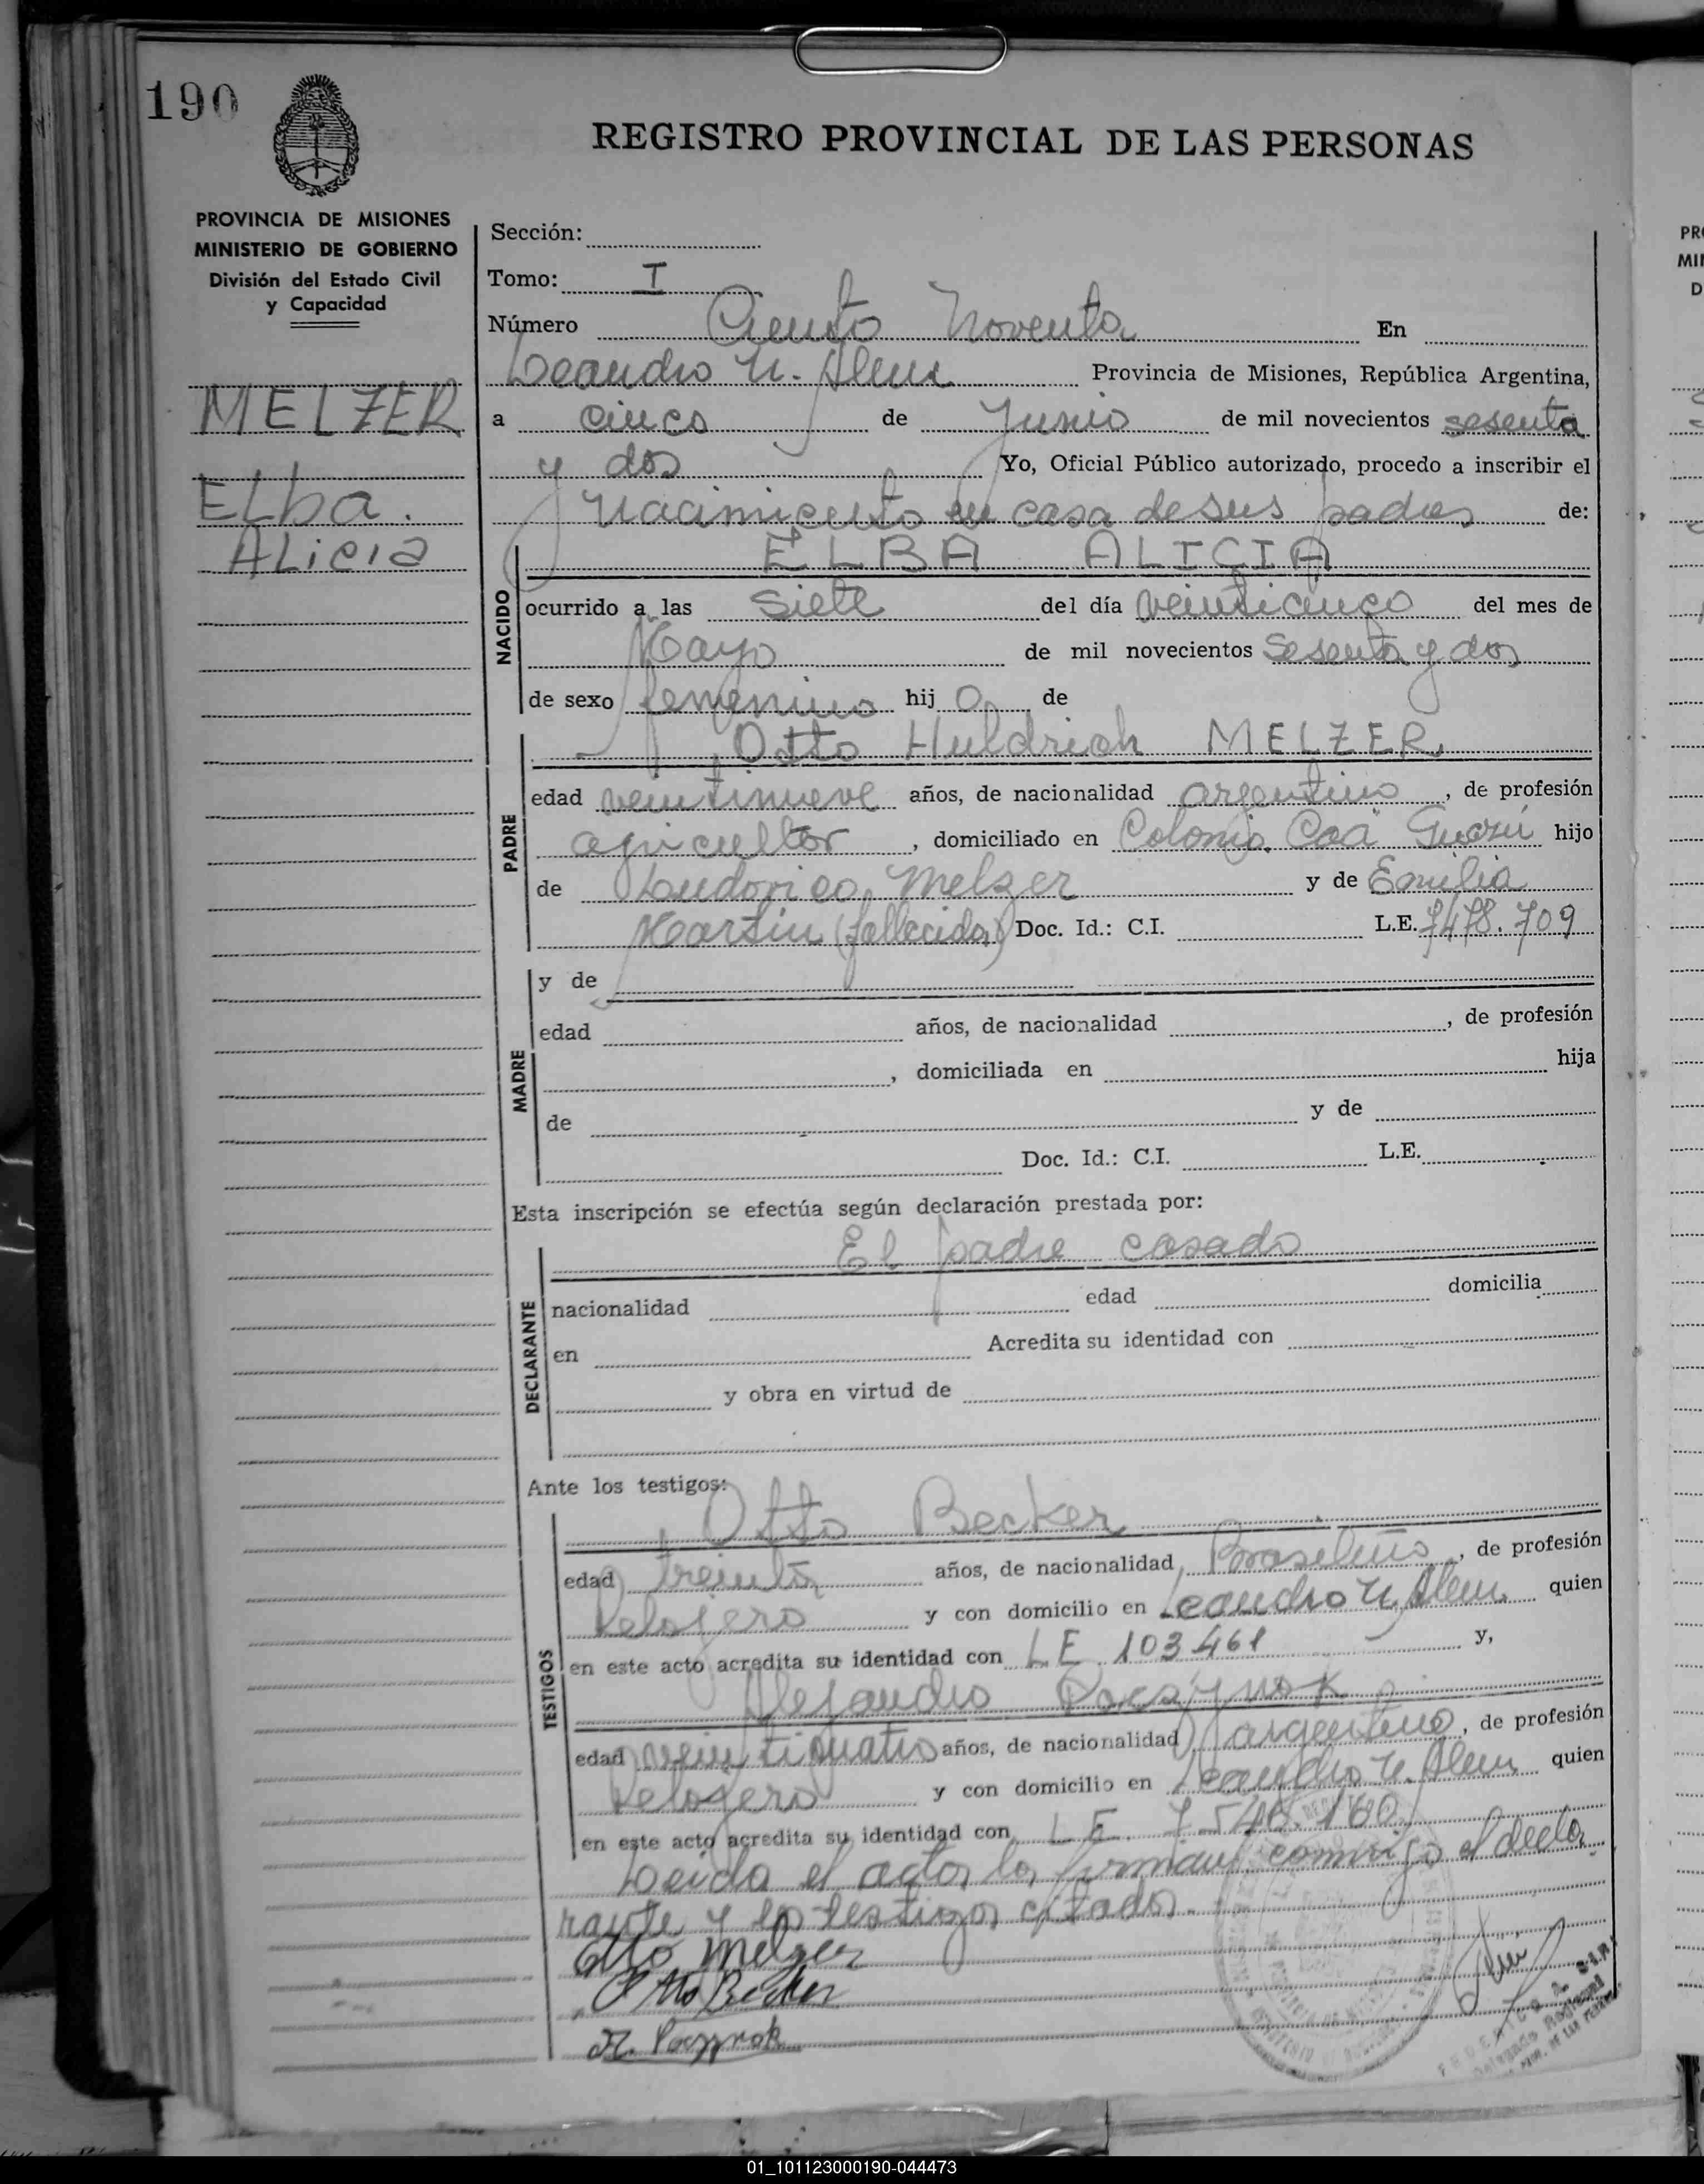 190
REGISTRO PROVINCIAL DE LAS PERSONAS
PROVINCIA DE MISIONES
MINISTERIO DE GOBIERNO
División del Estado Civil
y Capacidad
MELZER
Elba.
Alicia
Sección:
Tomo: I
Número Ciento Noventa En
Leandro N. Alem Provincia de Misiones, República Argentina,
a cinco de Junio de mil novecientos sesenta
y dos Yo, Oficial Público autorizado, procedo a inscribir el
nacimiento en casa de sus padres de:
ELBA ALICIA
NACIDO
ocurrido a las siete del día veinticinco del mes de
Mayo de mil novecientos sesenta y dos
de sexo femenino hij a de
PADRE
Otto Huldrich MELZER
edad veintinueve años, de nacionalidad argentino, de profesión
agricultor, domiciliado en Colonia Caá Guazú hijo
de Ludovico Melzer y de Emilia
Martin (fallecida) Doc. Id.: C.I. L.E. 7478.709
MADRE
y de
edad años, de nacionalidad , de profesión
, domiciliada en hija
de y de
Doc. Id.: C.I. L.E.
Esta inscripción se efectúa según declaración prestada por:
DECLARANTE
El padre casado
nacionalidad edad domicilia
en Acredita su identidad con
y obra en virtud de
Ante los testigos:
TESTIGOS
Otto Becker
edad treinta años, de nacionalidad Brasileño, de profesión
Relojero y con domicilio en Leandro N. Alem quien
en este acto acredita su identidad con LE 103461 y,
Alejandro
edad veinticuatro años, de nacionalidad argentino, de profesión
Relojero y con domicilio en Leandro N. Alem quien
en este acto acredita su identidad con L E. 7.540.160
Leida el acta, la firman conmigo el decla
rante y los testigos citados.
Otto Melzer
Otto Becker
01_101123000190-044473